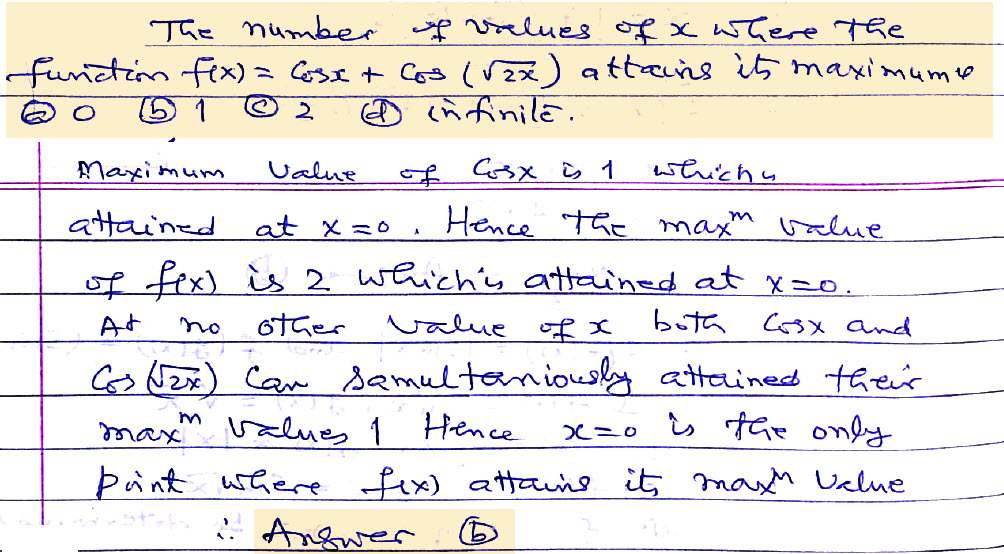 The number of values of x where the
function f(x) = Cosx + Cos (√2x) attains its maximum is
ⓐ 0 ⓑ 1 ⓒ 2 ⓓ infinite.
Maximum value of Cosx is 1 which is
attained at x=0. Hence the maxᵐ value
of f(x) is 2 which is attained at x=0.
At no other value of x both Cosx and
Cos (√2x) Can samultaniously attained their
maxᵐ values 1 Hence x=0 is the only
point where f(x) attains its maxᵐ Value
∴ Answer ⓑ